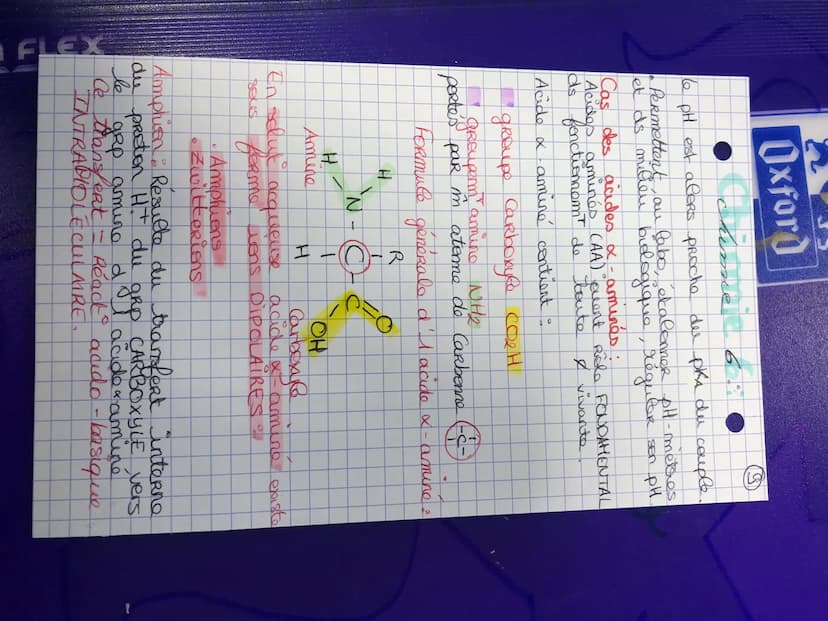 FLEX
Oxford
Chimie 6 :
⑨
le pH est alors proche du pKA du couple.
. Permettent, au labo, étalonner pH-mètres
et ds milieu biologique, réguler son pH
Cas des acides α-aminés :
Acides aminés (AA) jouent rôle FONDAMENTAL
ds fonctionnemT de toute vivante.
Acide α-aminé contient :
groupe Carboxyle CO2H
groupemT amino NH2
portés par m̂ atome de Carbone (-C-)
Formule générale d'1 acide α-aminé :
H R O
N - C - C
H H OH
Amine Carboxyle
En solut° aqueuse acide α-aminé existe
sous forme ions DIPOLAIRES :
. Amphions
. Zwitterions
Amphion : Résulte du transfert interne
du proton H+ du grp CARBOXYLE vers
le grp amino d'1 acide α-aminé
Ce transfert = Réact° acido-basique
INTRAMOLÉCULAIRE.